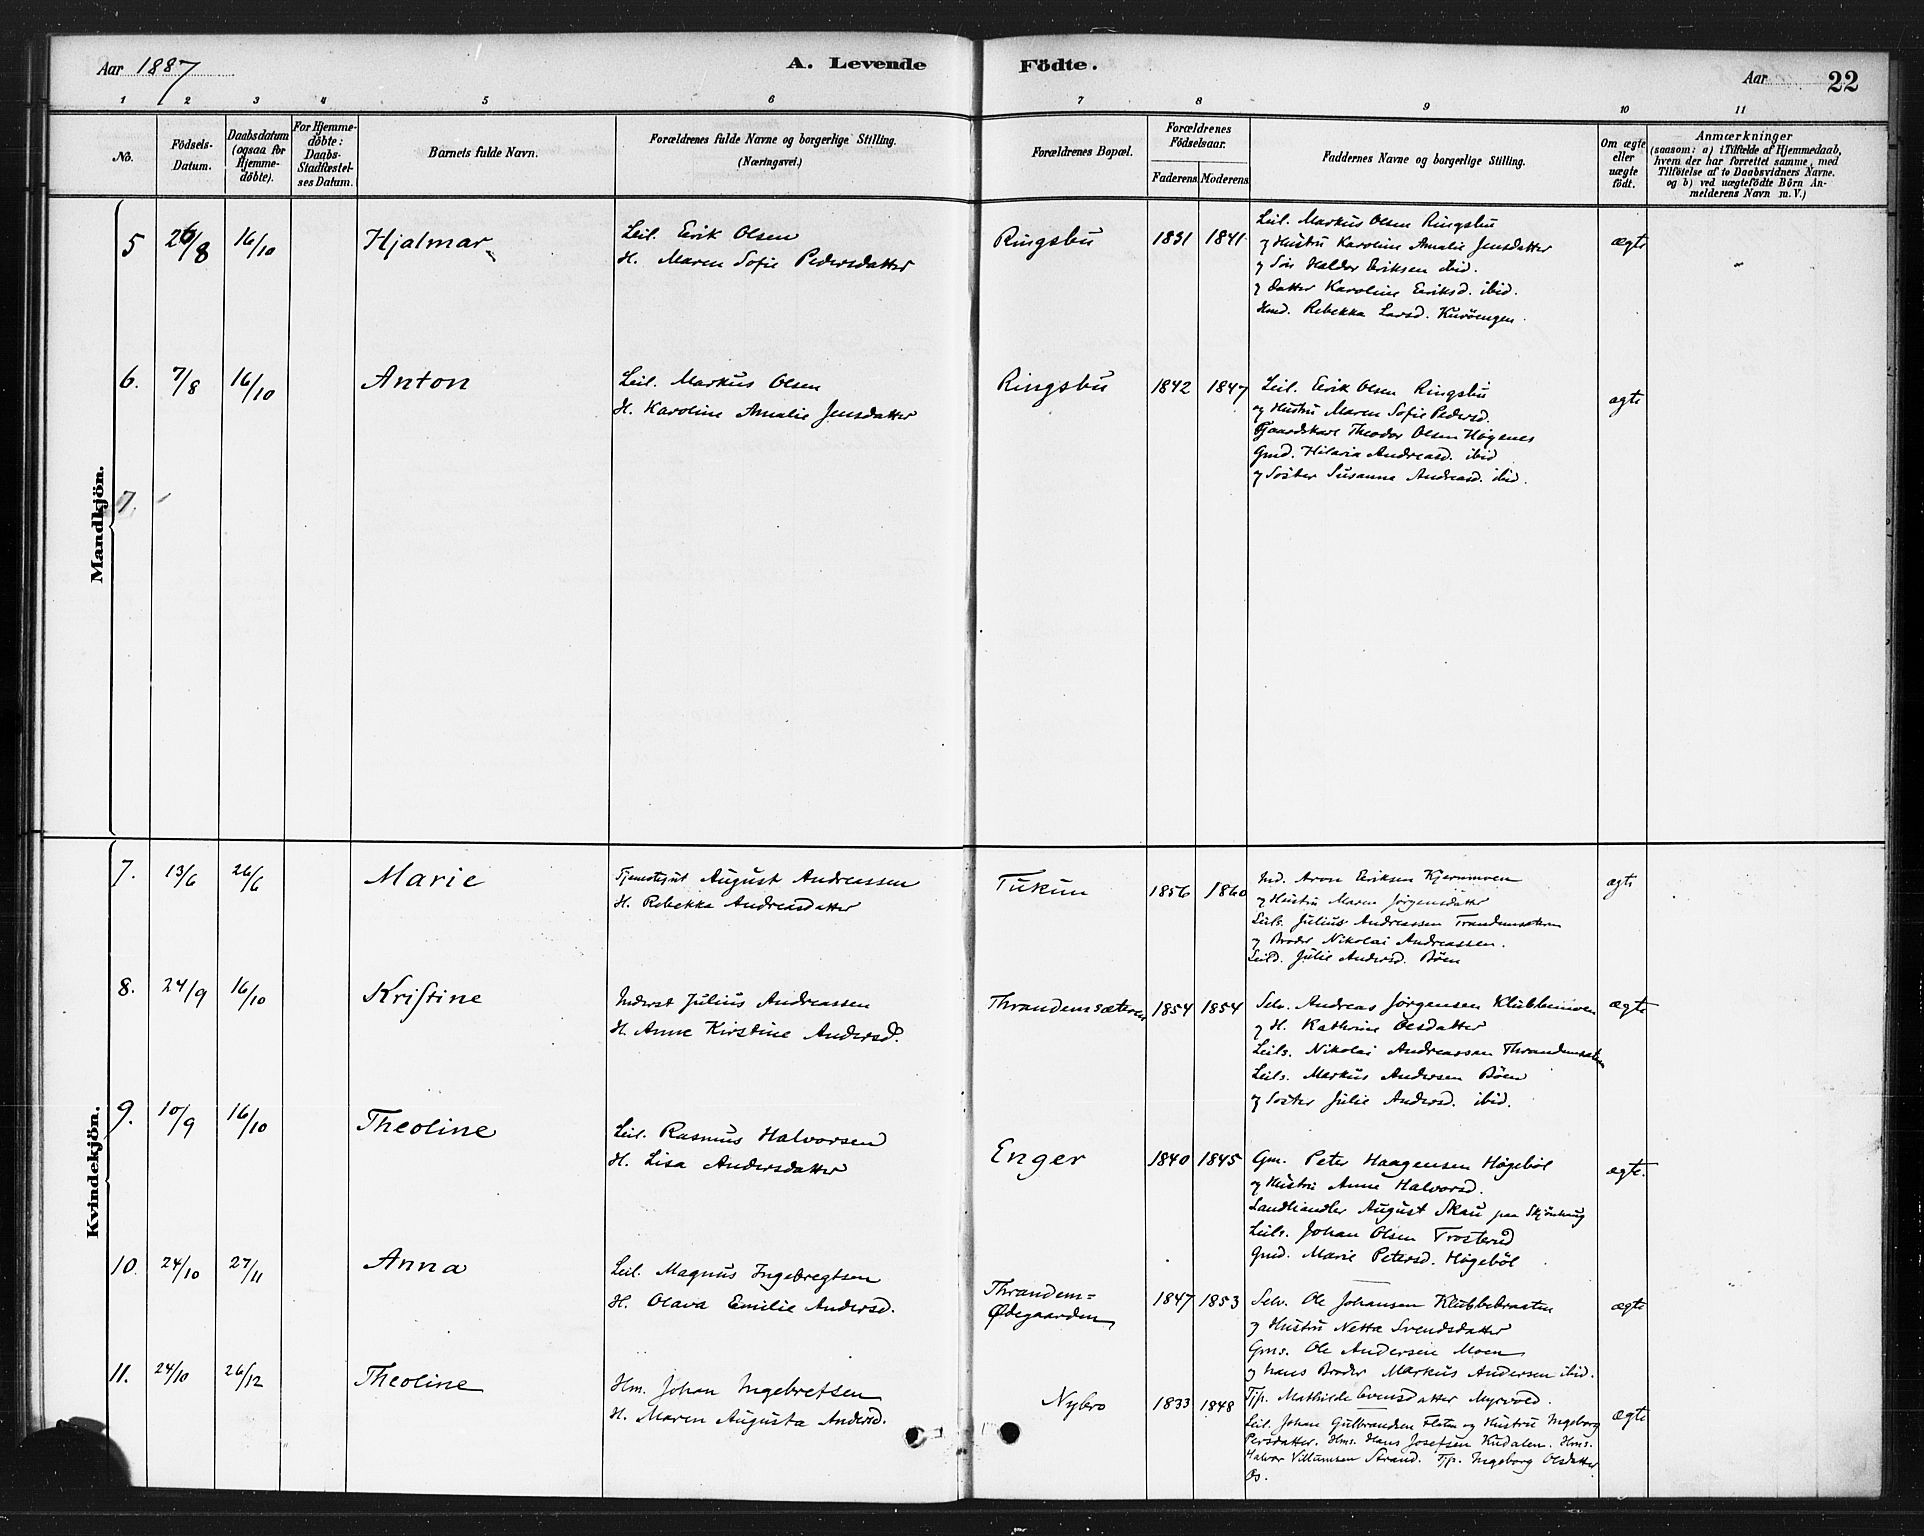 Aar 1887
A. Levende
Födte.
Aar
22
1 2 3 4 5 6 7 8 9 10 11
No.
Födsels-
Datum.
Daabsdatum
(ogsaa for
Hjemme-
døbte).
For Hjemme-
døbte:
Daabs-
Stadfæstel-
ses Datum.
Barnets fulde Navn.
Forældrenes fulde Navne og borgerlige Stilling.
(Næringsvei.)
Forældrenes Bopæl.
Forældrenes
Födselsaar.
Faderens. Moderens.
Faddernes Navne og borgerlige Stilling.
Om ægte
eller
uægte
født.
Anmærkninger
(saasom: a) i Tilfælde af Hjemmedaab,
hvem der har forrettet samme, med
Tilføielse af to Daabsvidners Navne.
og b) ved uægtefödte Börn An-
melderens Navn m. V.)
Mandkjön.
5 26/8 16/10 Hjalmar
Leil. Erik Olsen
H. Maren Sofie Pedersdatter
Ringsbu 1831 1841
Leil. Markus Olsen Ringsbu
og Hustru Karoline Amalie Jensdatter
og Søn Haldor Eriksen ibid.
og datter Karoline Eriksd. ibid.
Hmd. Rebekka Larsd. Kurøengen.
ægte
6. 7/8 16/10 Anton
Leil. Markus Olsen
H. Karoline Amalie Jensdatter
Ringsbu 1842 1847
Leil. Erik Olsen Ringsbu
og Hustru Maren Sofie Pedersd.
Gaardskarl Theodor Olsen Høgenes
Gmd. Hilaria Andreasd. ibid
og Søster Susanna Andreasd. ibid.
ægte
7.
Kvindekjön.
7. 13/6 26/6 Marie
Tjenestegut August Andreassen
H. Rebekka Andreasdatter
Tukun 1856 1860
Ind. Aron Eriksen Kjernmoen
og Hustru Maren Jørgensdatter
Leils. Julius Andreassen Trandemsæteren
og Broder Nikolai Andreassen.
Leild. Julie Andersd. Bøen
ægte
8. 24/9 16/10 Kristine
Inderst Julius Andreassen
H. Anne Kirstine Andersd.
Thrandemsæteren 1854 1854
Selv. Andreas Jørgensen Klubbemoen
og H. Kathrine Olsdatter
Leils. Nikolai Andreassen Thrandemsæteren
Leils. Markus Andersen Bøen
og Søster Julie Andersd. ibid.
ægte
9. 10/9 16/10 Theoline
Leil. Rasmus Halvorsen
H. Lisa Andersdatter
Enger 1840 1845
Gm. Peter Haagensen Høgebøl
og Hustru Anne Halvorsd.
Landhandler August Skau paa Skjønhaug
Leils. Johan Olsen Trosterud
Gmd. Marie Petersd. Høgebøl
ægte.
10. 24/10 27/11 Anna
Leil. Magnus Ingebregtsen
H. Olava Emilie Andersd.
Thrandem=
Ødegaarden 1847 1853
Selv. Ole Johansen Klubbebraaten
og Hustru Netta Svendsdatter
Gms. Ole Andersen Moen
og hans Broder Markus Andersen ibid.
Tjp. Mathilde Evensdatter Myrvold.
ægte
11. 24/10 26/12 Theoline
Hm. Johan Ingebretsen
H. Maren Augusta Andersd.
Nybro 1833 1848
Leil. Johan Gulbrandsen Floten og Hustru Ingeborg
Persdatter. Hms. Hans Josefsen Kudalen. Hms.
Halvor Villumsen Strand. Tjp. Ingeborg Olsdatter
Os.
ægte